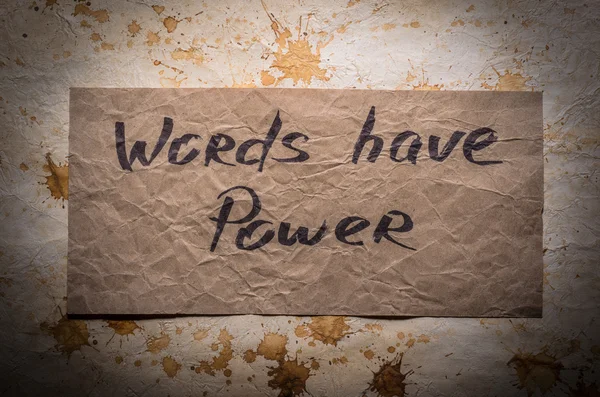 Words have
Power